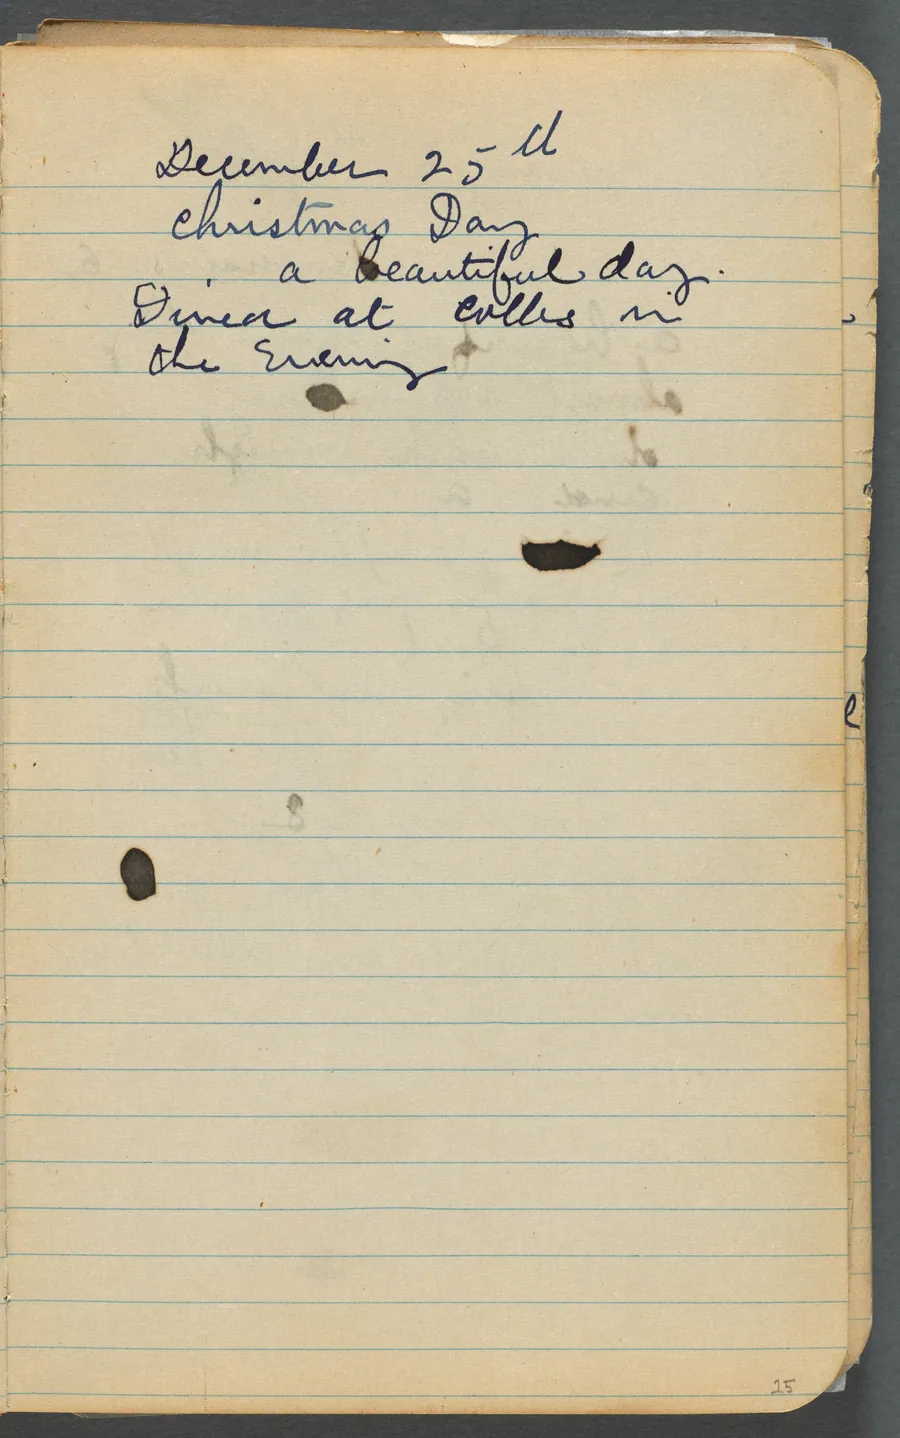 December 25th
Christmas Day
a beautiful day.
Dined at Colles in
the Evening
25